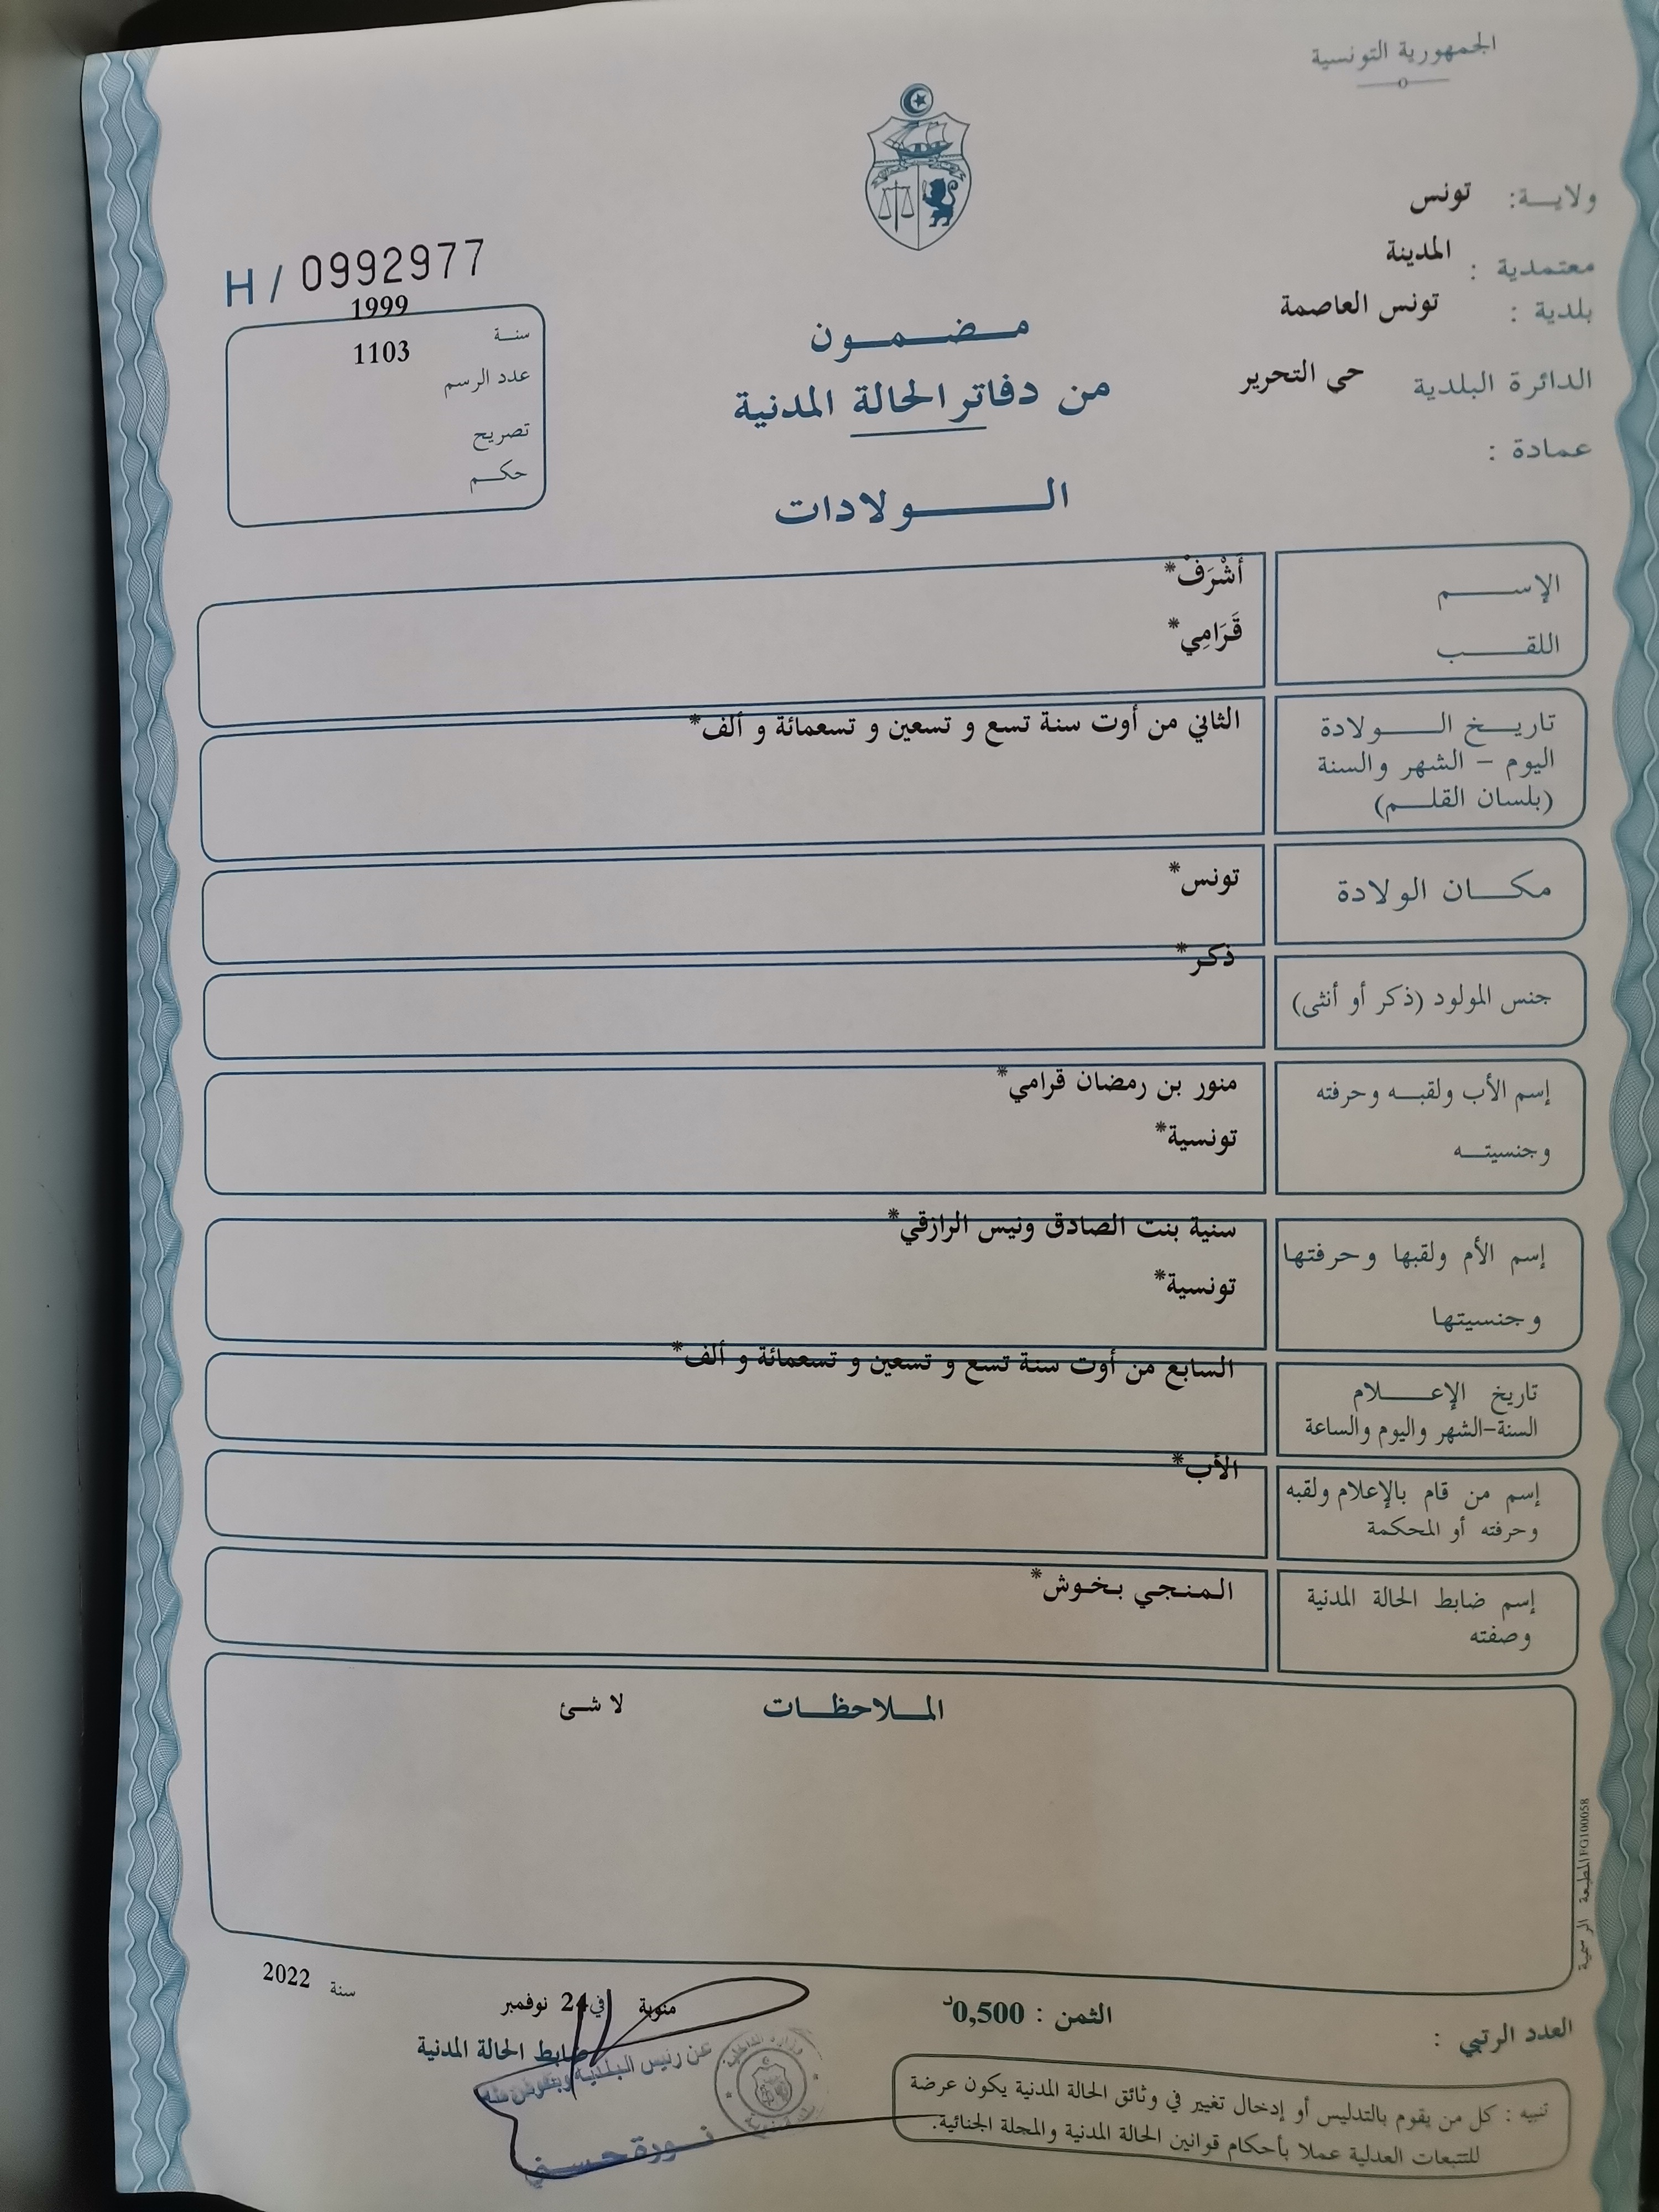 الجمهورية التونسية
ولاية: تونس
معتمدية : المدينة
بلدية : تونس العاصمة
الدائرة البلدية حي التحرير
عمادة :
H / 0992977
سنة 1999
عدد الرسم 1103
تصريح
حكم
مضمون
من دفاتر الحالة المدنية
الولادات
الإسم أَشْرَفْ*
اللقب قَرَامِي*
تاريخ الولادة الثاني من أوت سنة تسع و تسعين و تسعمائة و ألف*
اليوم - الشهر والسنة
(بلسان القلم)
مكان الولادة تونس*
جنس المولود (ذكر أو أنثى) ذكر*
إسم الأب ولقبه وحرفته منور بن رمضان قرامي*
وجنسيته تونسية*
إسم الأم ولقبها وحرفتها سنية بنت الصادق ونيس الرازقي*
وجنسيتها تونسية*
تاريخ الإعلام السابع من أوت سنة تسع و تسعين و تسعمائة و ألف*
السنة-الشهر واليوم والساعة
إسم من قام بالإعلام ولقبه الأب*
وحرفته أو المحكمة
إسم ضابط الحالة المدنية المنجي بخوش*
وصفته
الملاحظات لا شئ
المطبعة الرسمية FG100058
العدد الرتبي :
الثمن : 0,500د
منوبة في 24 نوفمبر سنة 2022
ضابط الحالة المدنية
عن رئيس البلدية وبتفويض منه
نورة حسني
تنبيه : كل من يقوم بالتدليس أو إدخال تغيير في وثائق الحالة المدنية يكون عرضة
للتتبعات العدلية عملا بأحكام قوانين الحالة المدنية والمجلة الجنائية.